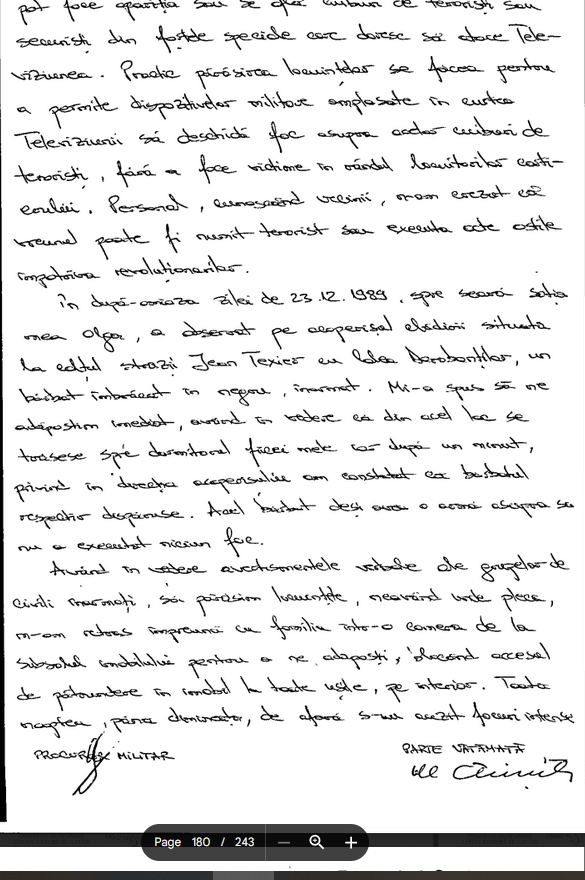 pot face apariția sau se află cuiburi de teroriști sau
securiști din forțele speciale care doresc să atace Tele-
viziunea. Practic părăsirea locuințelor se făcea pentru
a permite dispozitivelor militare amplasate în curtea
Televiziunii să deschidă foc asupra acelor cuiburi de
teroriști, fără a face victime în rândul locuitorilor carti-
erului. Personal, cunoscând vecinii, n-am crezut că
vreunul poate fi numit terorist sau executa acte ostile
împotriva revoluționarilor.
În după-amiaza zilei de 23.12.1989, spre seară soția
mea Olga, a observat pe acoperișul clădirii situată
la colțul străzii Jean Texier cu Calea Dorobanților, un
bărbat îmbrăcat în negru, înarmat. Mi-a spus să ne
adăpostim imediat, având în vedere că din acel loc se
trăsese spre dormitorul fiicei mele iar după un minut,
privind în direcția acoperișului am constatat că bărbatul
respectiv dispăruse. Acel bărbat deși avea o armă asupra sa
nu a executat niciun foc.
Având în vedere avertismentele verbale ale grupelor de
civili înarmați, să părăsim locuințele, neavând unde pleca,
m-am retras împreună cu familia într-o cameră de la
subsolul imobilului pentru a ne adăposti, blocând accesul
de pătrundere în imobil la toate ușile, pe interior. Toată
noaptea, până dimineața, de afară s-au auzit focuri intense
PROCUROR MILITAR
PARTE VĂTĂMATĂ
Page 180 / 243